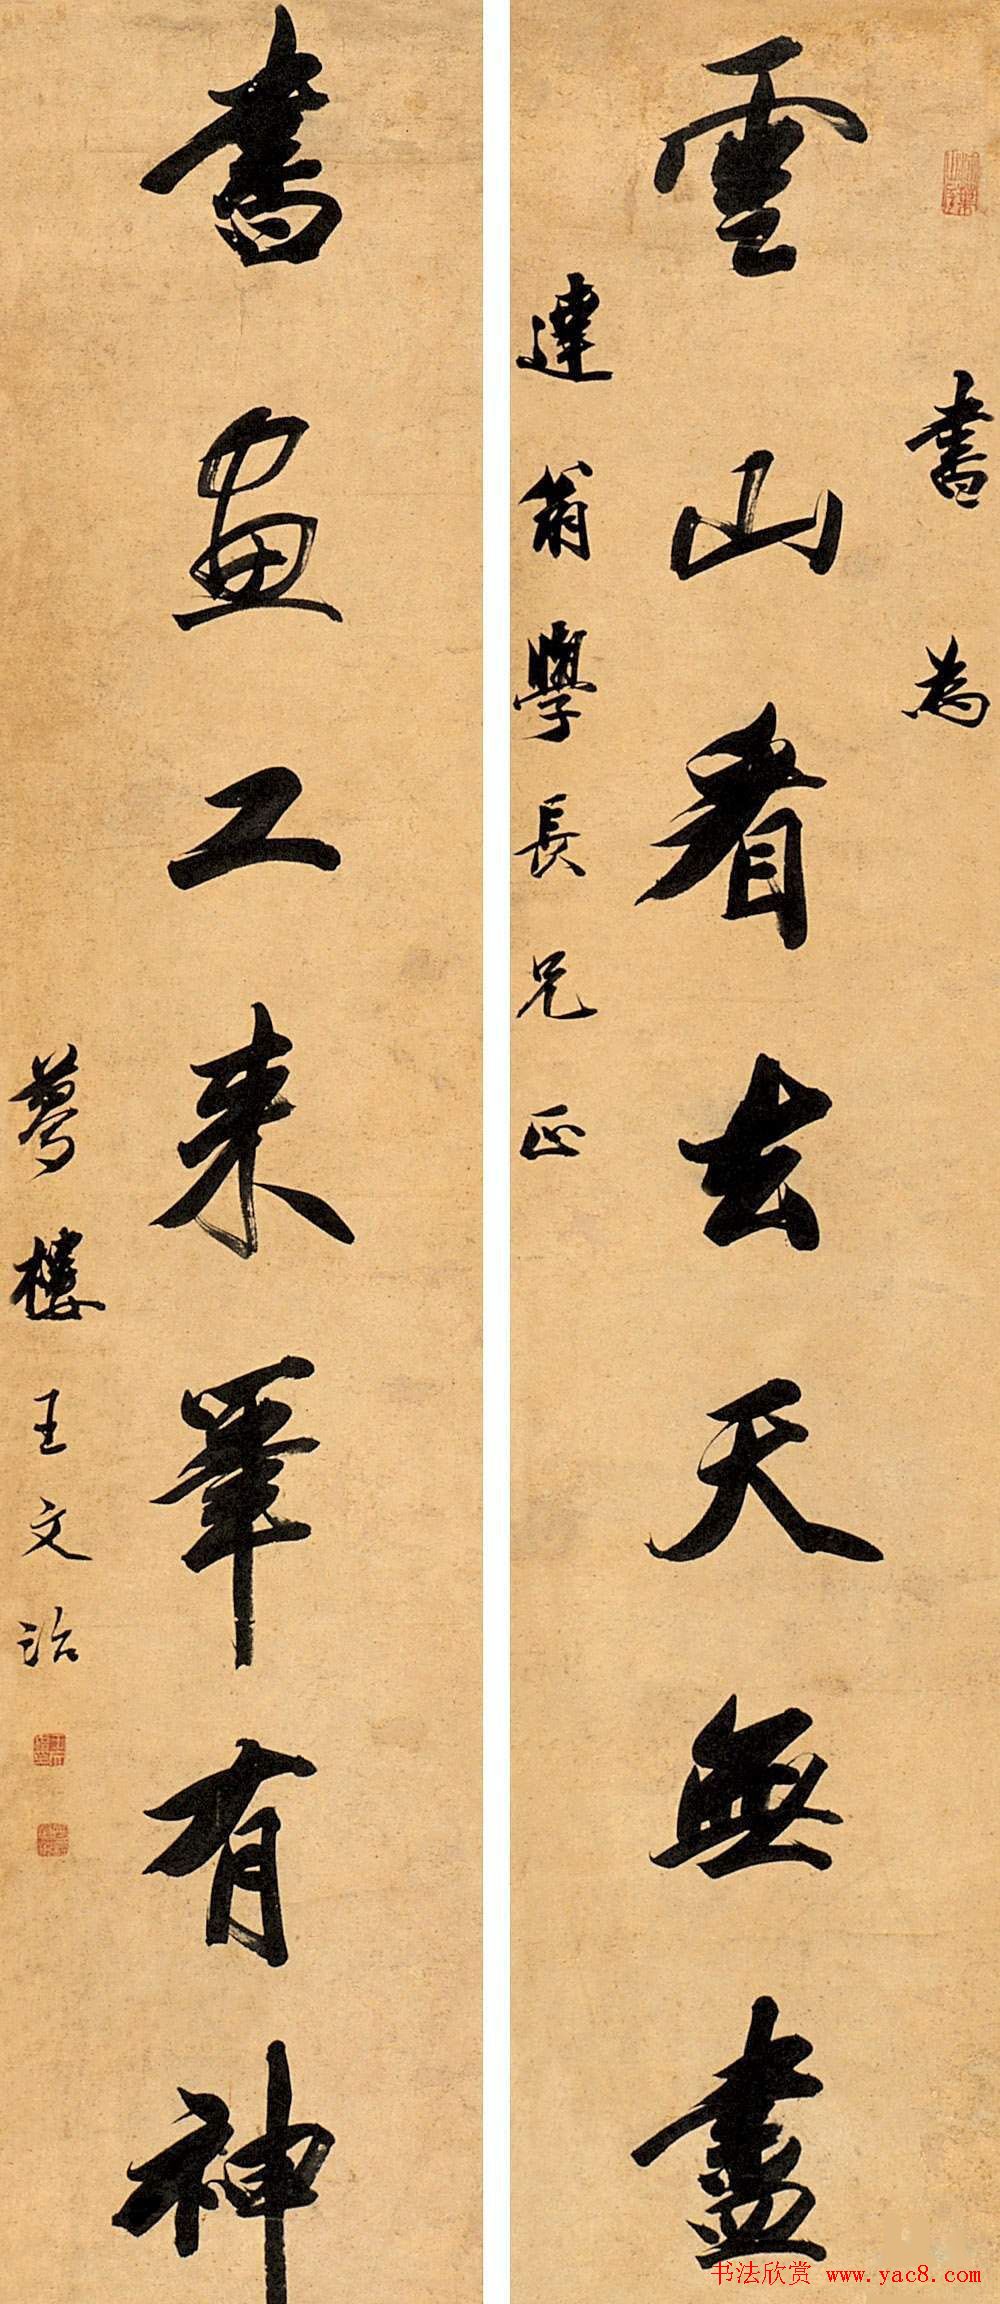 書為
雲山看去天無盡
達翁學長兄正
書畫工來筆有神
夢樓王文治
书法欣赏 www.yac8.com